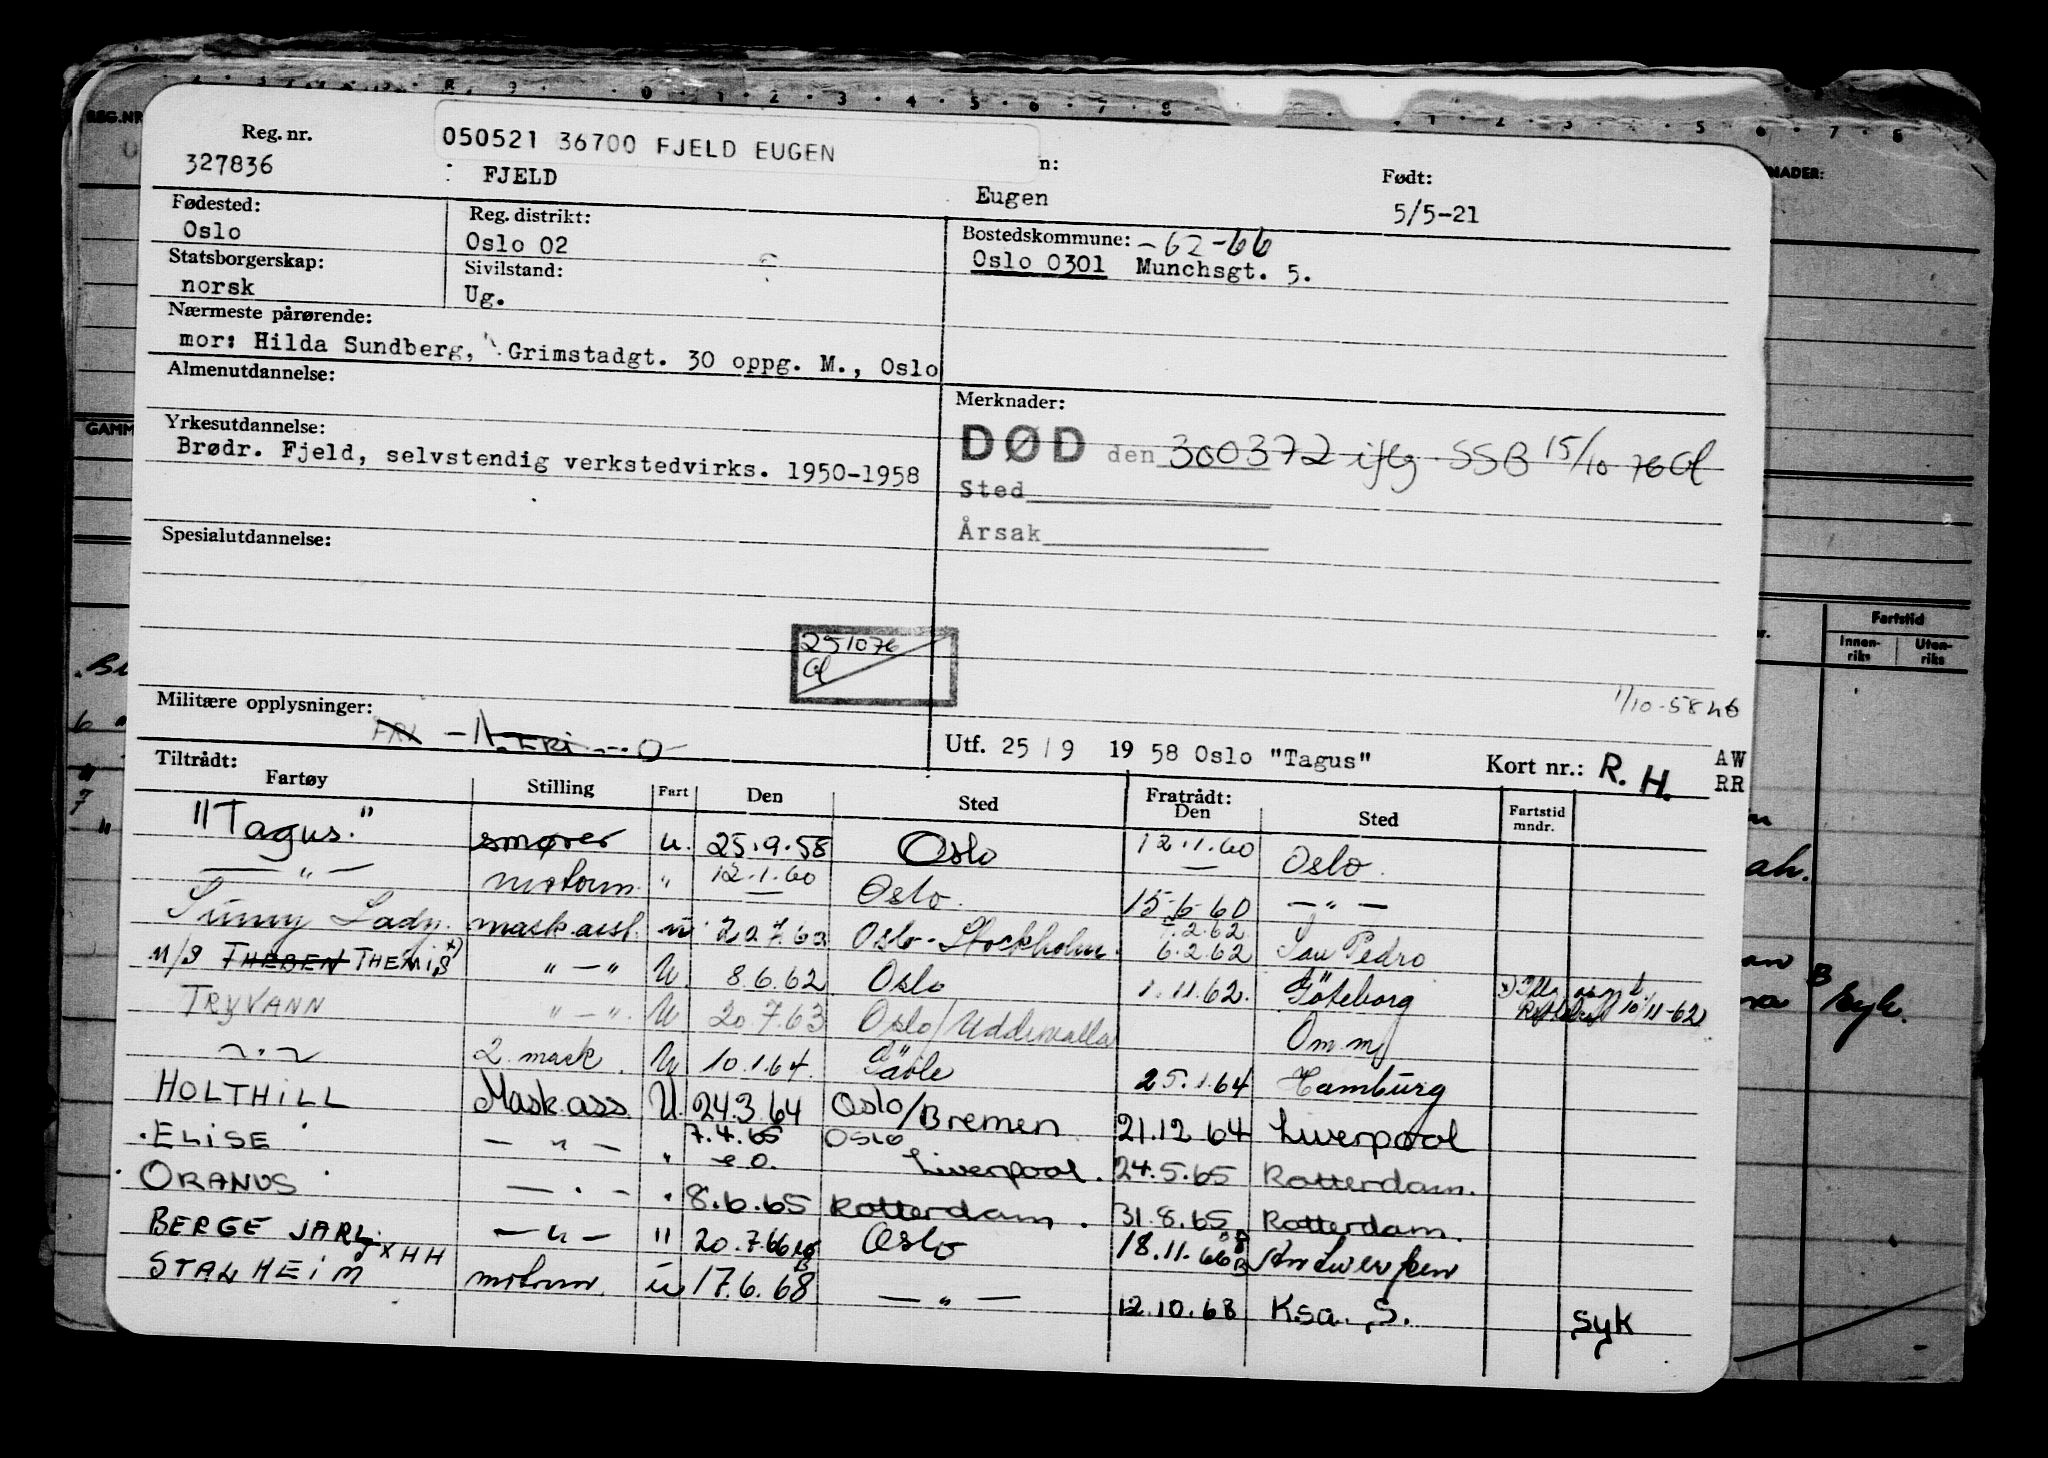 050521 36700 FJELD EUGEN
Reg. nr.
327836
FJELD
n:
Eugen
Født:
5/5-21
Fødested:
Oslo
Reg. distrikt:
Oslo 02
Bostedskommune: -62-66
Oslo 0301 Munchsgt. 5.
Statsborgerskap:
norsk
Sivilstand:
Ug.
Nærmeste pårørende:
mor: Hilda Sundberg, Grimstadgt. 30 oppg. M., Oslo
Almenutdannelse:
Merknader:
DØD den 300372 iflg. SSB 15/10 76 Gl
Sted
Årsak
Yrkesutdannelse:
Brødr. Fjeld, selvstendig verkstedvirks. 1950-1958
Spesialutdannelse:
251076
Gl
Militære opplysninger:
1/10-58
Utf. 25 / 9 19 58 Oslo "Tagus" Kort nr.: R. H. AW
RR
Tiltrådt:
Fartøy Stilling Fart Den Sted Fratrådt: Den Sted Fartstid mndr.
"Tagus." smører u. 25.9.58 Oslo 12.1.60 Oslo.
— " — motorm. " 12.1.60 Oslo. 15.6.60 — " —
Sunny Lady. mask.asst. u. Oslo-Stockholm. 6.2.62 San Pedro
M/S THEBEN THEMIS x) " — " U. 8.6.62 Oslo 1.11.62. Göteborg 10/11-62
TRYVANN " — " U 20.7.63 Oslo/Uddevalla Om.m
— " — 2 mask. U 10.1.64. Gävle 25.1.64 Hamburg
HOLTHILL Mask ass U. 24.3.64 Oslo/Bremen 21.12.64 Liverpool
ELISE — " — " 7.4.65 Oslo Liverpool. 24.5.65 Rotterdam.
ORANUS — " — " 8.6.65 Rotterdam. 31.8.65 Rotterdam.
BERGE JARL x HH — " — " 20.7.66 Oslo 18.11.66 Antwerpen
STALHEIM motorm. u 17.6.68 — " — 12.10.68 Ksa. S. Syk
GAMM
Fartstid
Innen-
riks
Uten-
riks
Syk.